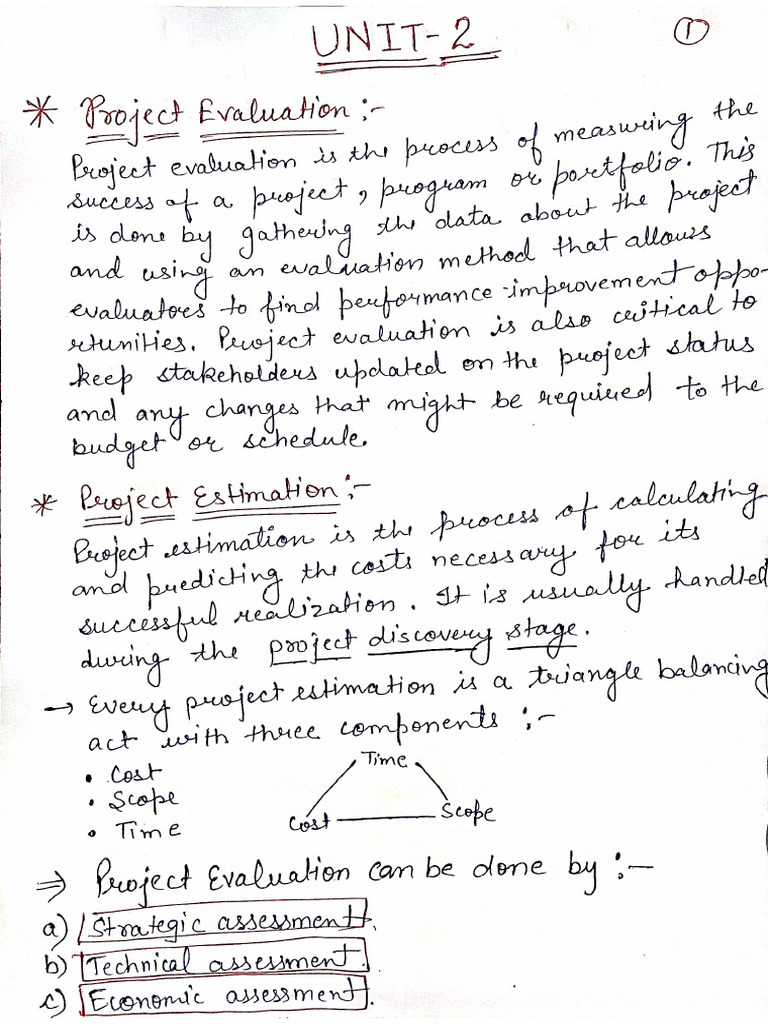 UNIT-2
1
* Project Evaluation :-
Project evaluation is the process of measuring the
success of a project, program or portfolio. This
is done by gathering the data about the project
and using an evaluation method that allows
evaluators to find performance-improvement oppo-
rtunities. Project evaluation is also critical to
keep stakeholders updated on the project status
and any changes that might be required to the
budget or schedule.
* Project Estimation :-
Project estimation is the process of calculating
and predicting the costs necessary for its
successful realization. It is usually handled
during the project discovery stage.
→ Every project estimation is a triangle balancing
act with three components :-
• Cost
• Scope
• Time
Time
Cost
Scope
⇒ Project Evaluation can be done by :-
a) Strategic assessment.
b) Technical assessment.
c) Economic assessment.